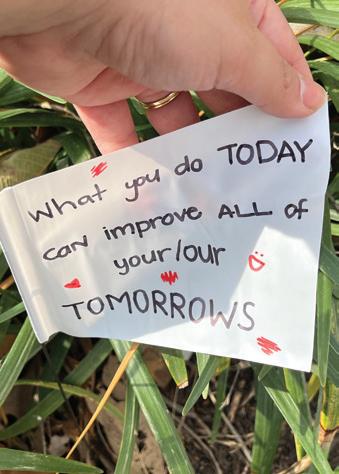 What you do TODAY
can improve ALL of
your/our
TOMORROWS